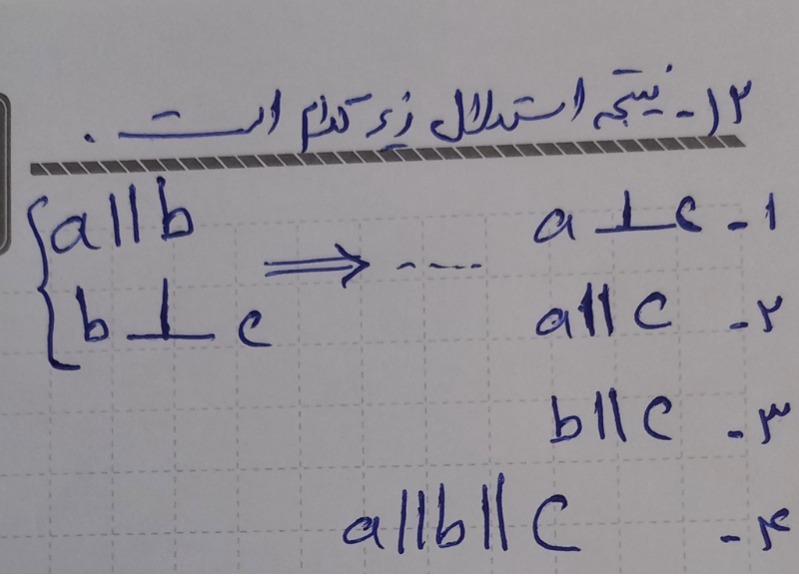 ۱۳- نتیجه استدلال زیر کدام است.
{a||b
b ⊥ c ⇒ ....
۱- a ⊥ c
۲- a||c
۳- b||c
۴- a||b||c